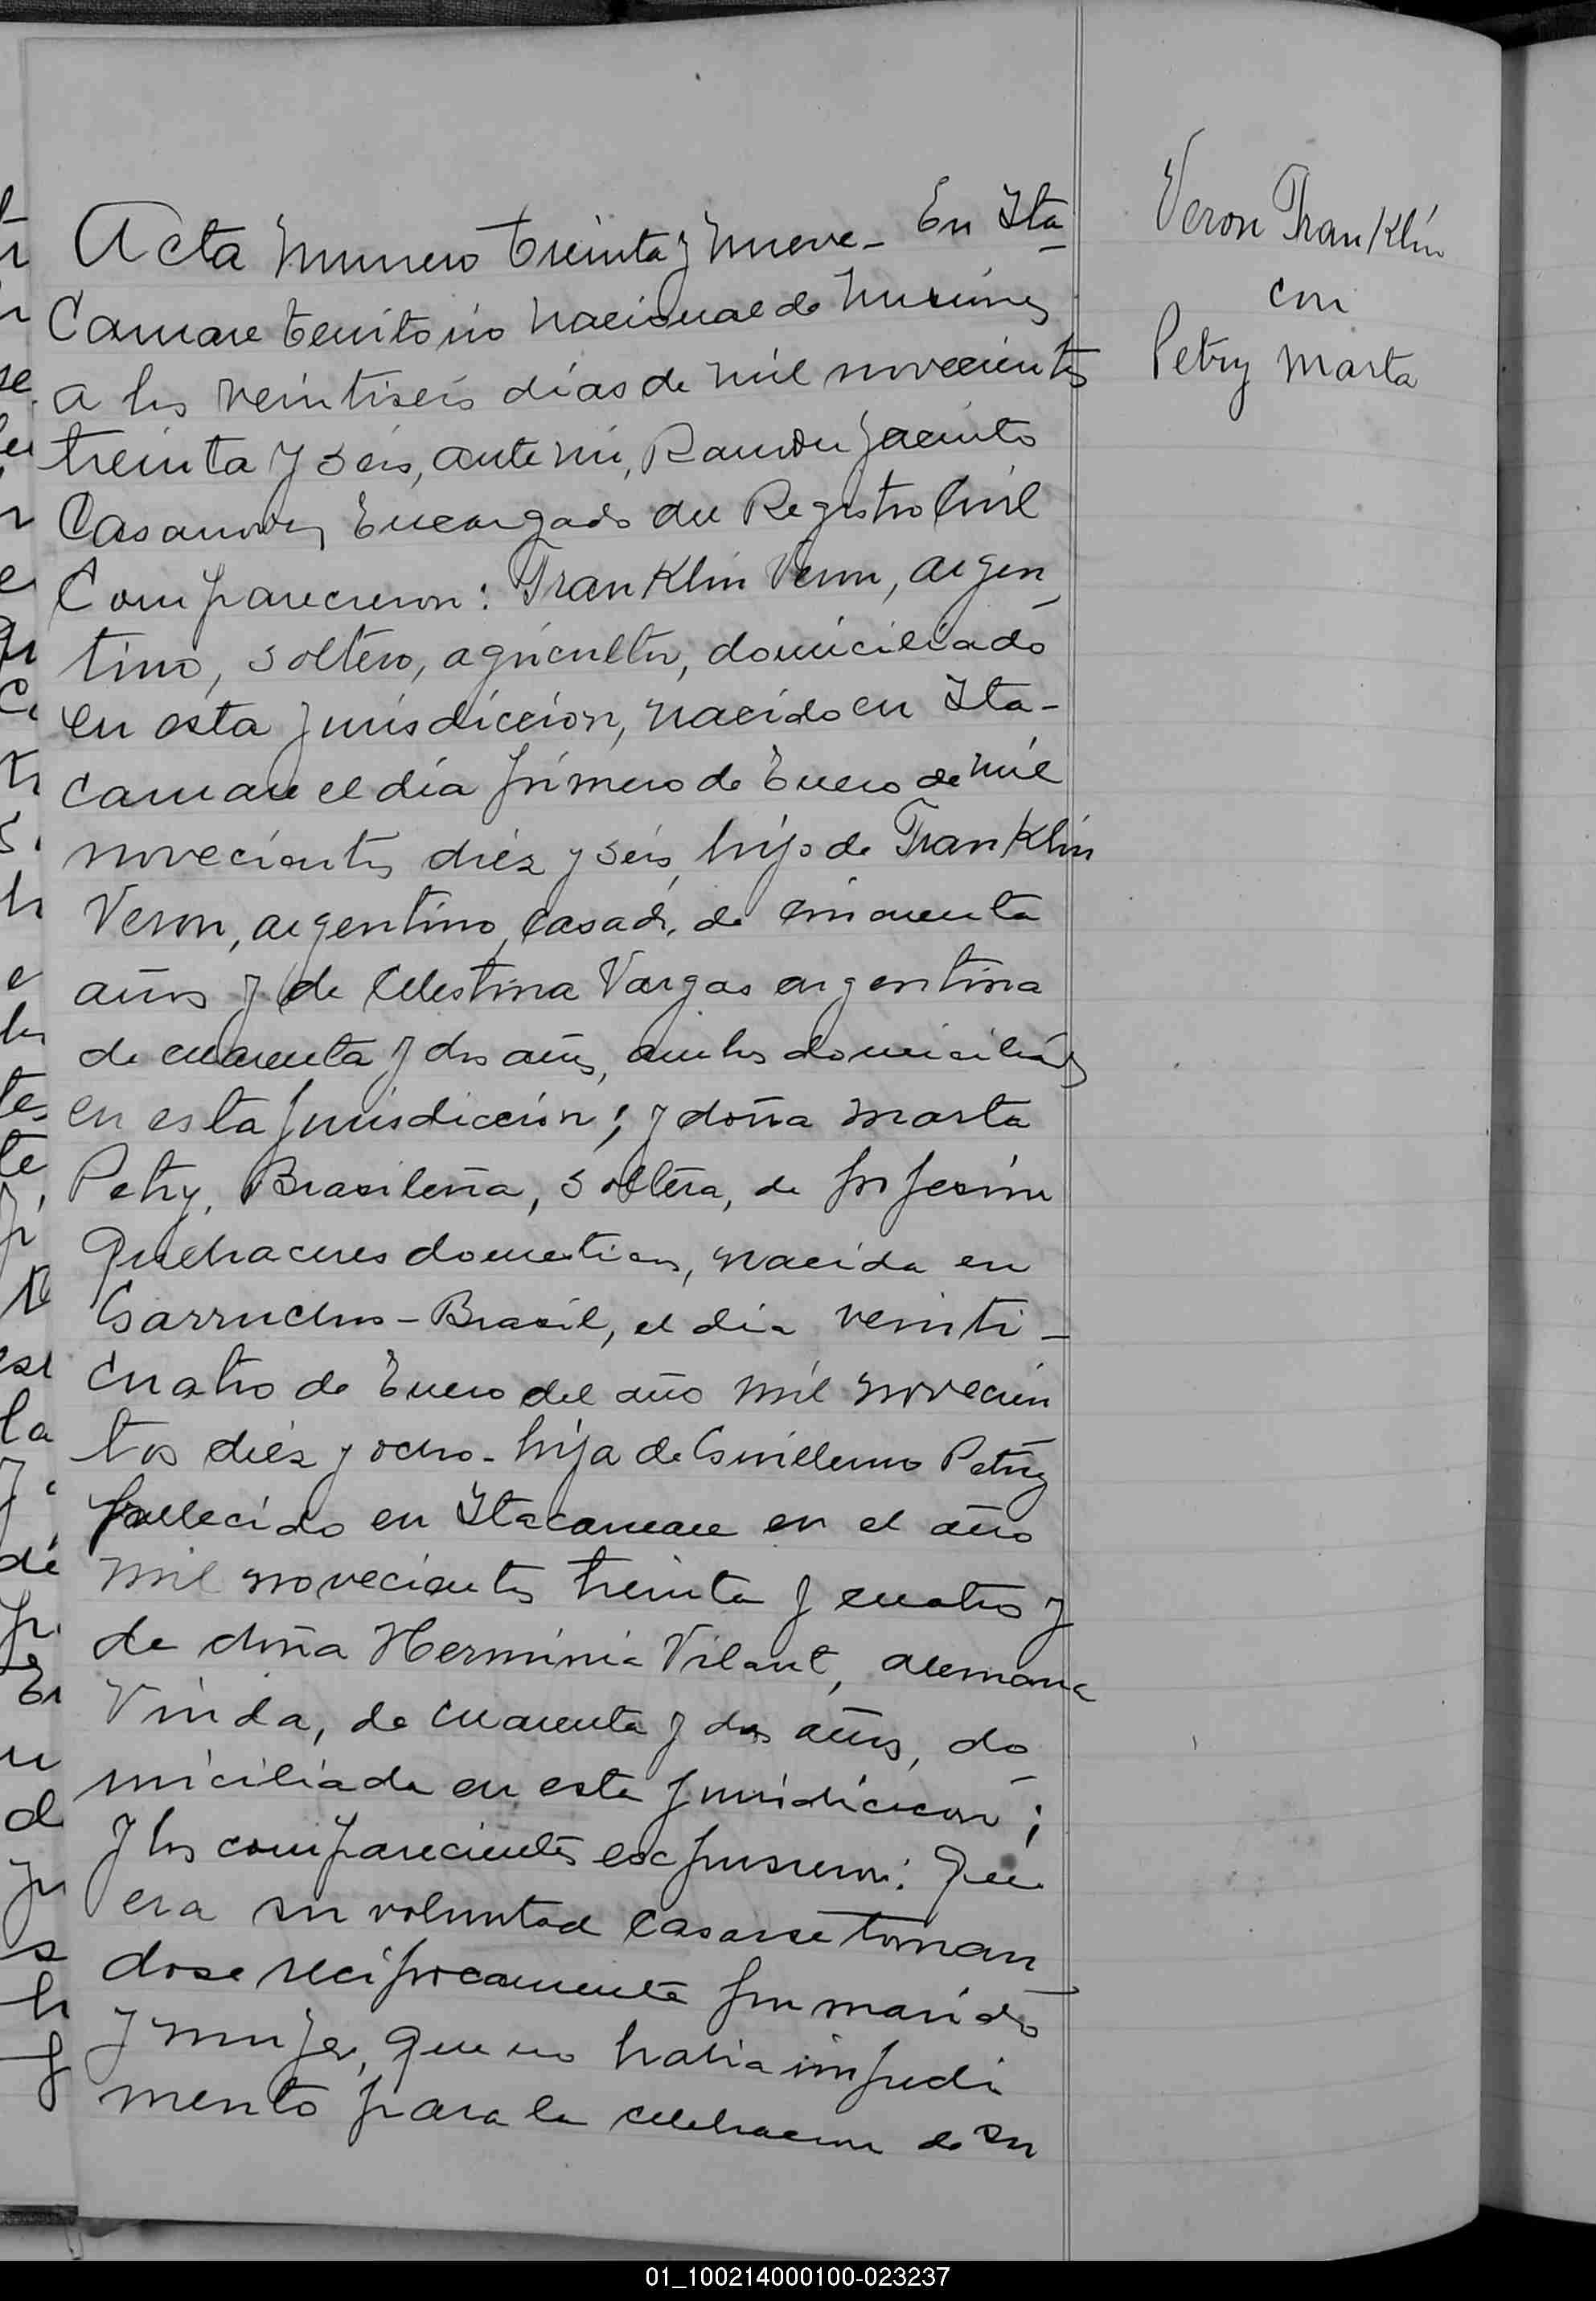 Acta Numero treinta y nueve - En Ita-
Camare territorio Nacional de Misiones
a los veintiseis dias de mil novecientos
treinta y seis, ante mi, Ramon Jacinto
Casanova, Encargado del Registro Civil
Comparecieron: Franklin Veron, argen-
tino, soltero, agricultor, domiciliado
en esta jurisdiccion, nacido en Ita-
camare el dia primero de Enero de mil
novecientos diez y seis, hijo de Franklin
Veron, argentino, casado, de cincuenta
años y de Celestina Vargas argentina
de cuarenta y dos años, ambos domiciliados
en esta jurisdiccion; y doña Marta
Petry, Brasileña, soltera, de profesion
Quehaceres domesticos, nacida en
Garruchos - Brasil, el dia veinti-
cuatro de Enero del año mil novecien
tos diez y ocho - hija de Guillermo Petry
fallecido en Itacamare en el año
mil novecientos treinta y cuatro y
de doña Herminia Vilant, alemana
Viuda, de cuarenta y dos años, do-
miciliada en esta juridicicion;
y los comparecientes expusieron: Que
era su voluntad casarse toman
dose reciprocamente por marido
y mujer, que no habia impedi
mento para la celebracion de su
Veron Franklin
con
Petry Marta
01_100214000100-023237